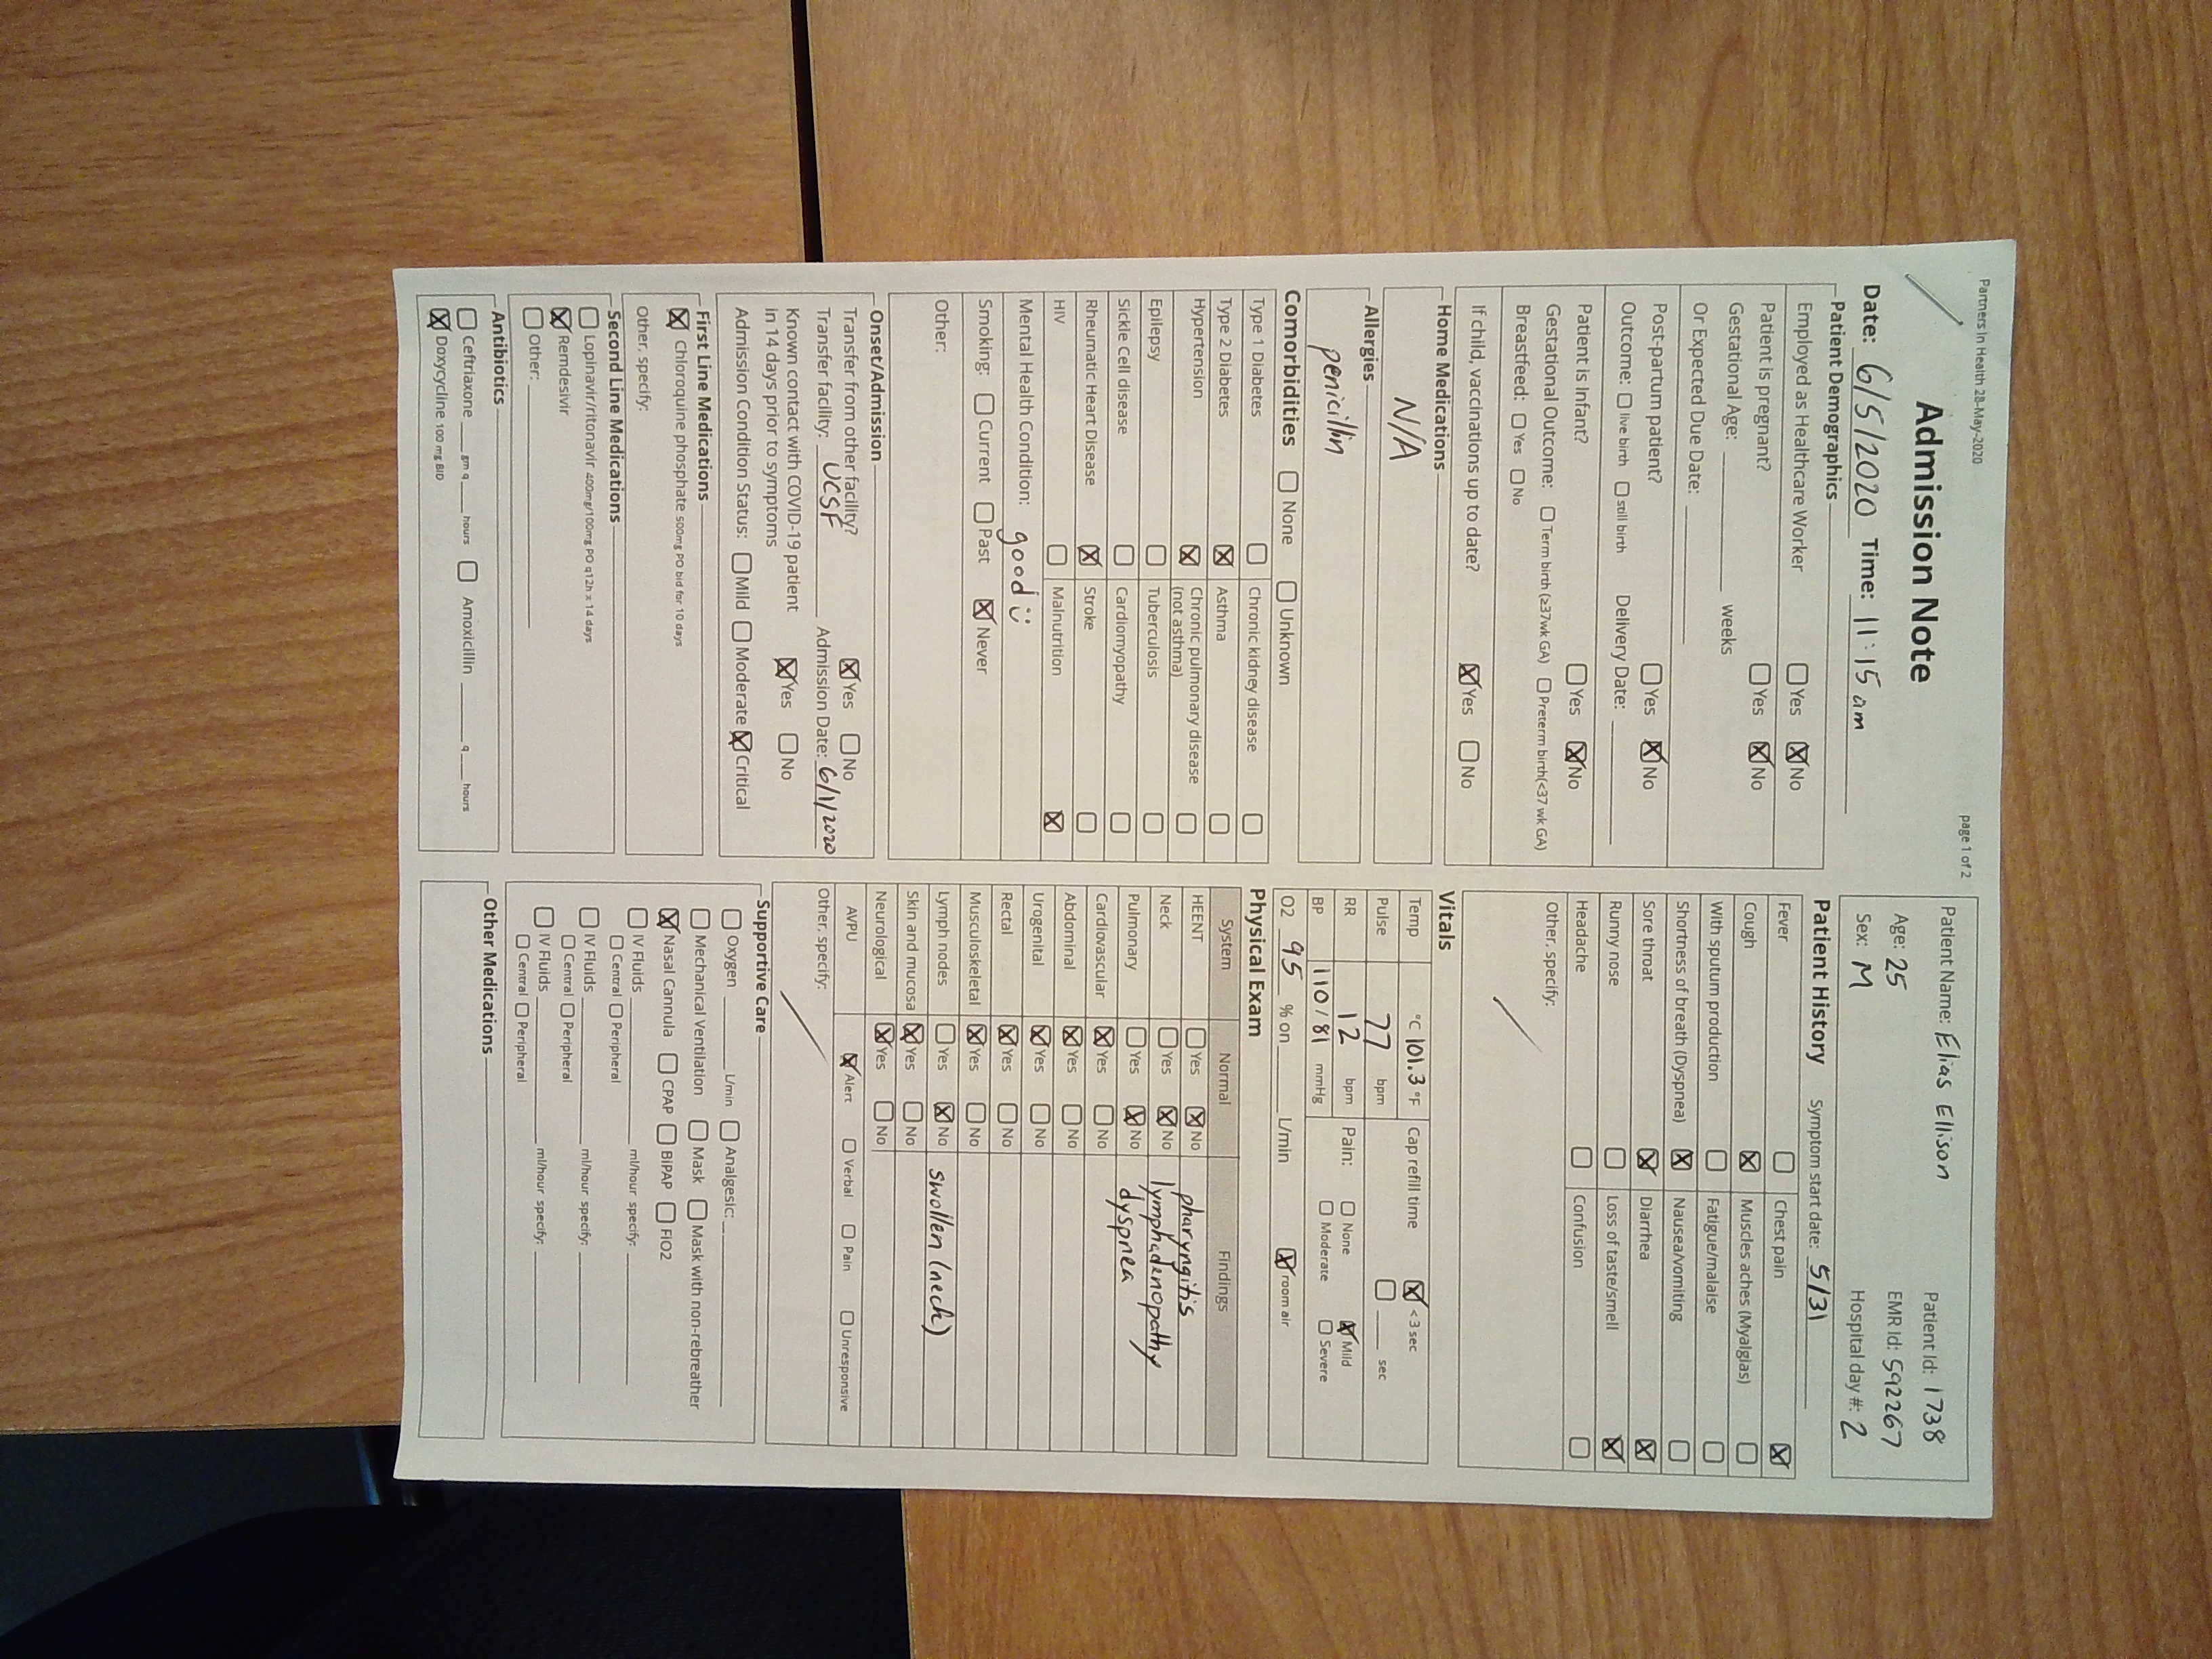 Partners In Health 28-May-2020
page 1 of 2
Admission Note
Date: 6/5/2020 Time: 11:15 am
Patient Demographics
Employed as Healthcare Worker Yes No
Patient is pregnant? Yes No
Gestational Age: weeks
Or Expected Due Date:
Post-partum patient? Yes No
Outcome: live birth still birth Delivery Date:
Patient is Infant? Yes No
Gestational Outcome: Term birth (≥37wk GA) Preterm birth(<37 wk GA)
Breastfeed: Yes No
If child, vaccinations up to date? Yes No
Home Medications
N/A
Allergies
penicillin
Comorbidities None Unknown
Type 1 Diabetes Chronic kidney disease
Type 2 Diabetes Asthma
Hypertension Chronic pulmonary disease
(not asthma)
Epilepsy Tuberculosis
Sickle Cell disease Cardiomyopathy
Rheumatic Heart Disease Stroke
HIV Malnutrition
Mental Health Condition: good :)
Smoking: Current Past Never
Other:
Onset/Admission
Transfer from other facility? Yes No
Transfer facility: UCSF Admission Date: 6/1/2020
Known contact with COVID-19 patient
in 14 days prior to symptoms Yes No
Admission Condition Status: Mild Moderate Critical
First Line Medications
Chloroquine phosphate 500mg PO bid for 10 days
Other, specify:
Second Line Medications
Lopinavir/ritonavir 400mg/100mg PO q12h x 14 days
Remdesivir
Other:
Antibiotics
Ceftriaxone gm q hours Amoxicillin q hours
Doxycycline 100 mg BID
Patient Name: Elias Ellison Patient Id: 1738
Age: 25 EMR Id: 592267
Sex: M Hospital day #: 2
Patient History Symptom start date: 5/31
Fever Chest pain
Cough Muscles aches (Myalgias)
With sputum production Fatigue/malaise
Shortness of breath (Dyspnea) Nausea/vomiting
Sore throat Diarrhea
Runny nose Loss of taste/smell
Headache Confusion
Other, specify:
Vitals
Temp °C 101.3 °F Cap refill time < 3 sec
Pulse 77 bpm sec
RR 12 bpm Pain: None Mild
BP 110/81 mmHg Moderate Severe
O2 95 % on L/min room air
Physical Exam
System Normal Findings
HEENT Yes No pharyngitis
Neck Yes No lymphadenopathy
Pulmonary Yes No dyspnea
Cardiovascular Yes No
Abdominal Yes No
Urogenital Yes No
Rectal Yes No
Musculoskeletal Yes No
Lymph nodes Yes No swollen (neck)
Skin and mucosa Yes No
Neurological Yes No
AVPU Alert Verbal Pain Unresponsive
Other, specify:
Supportive Care
Oxygen L/min Analgesic:
Mechanical Ventilation Mask Mask with non-rebreather
Nasal Cannula CPAP BIPAP FIO2
IV Fluids ml/hour specify:
Central Peripheral
IV Fluids ml/hour specify:
Central Peripheral
IV Fluids ml/hour specify:
Central Peripheral
Other Medications